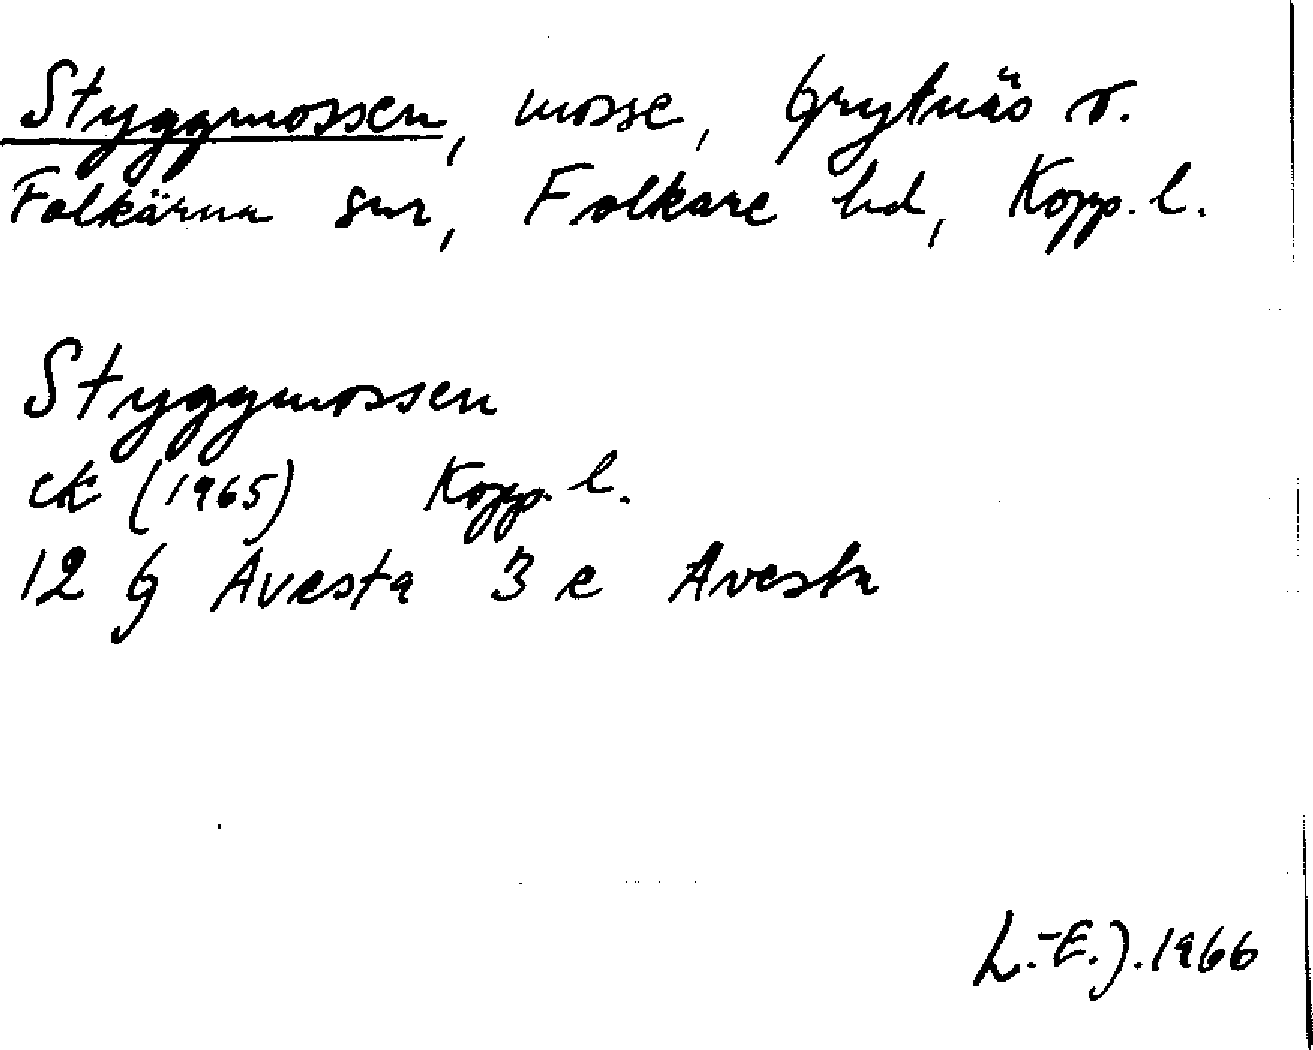 Styggmossen, mosse, Grytnäs o.
Folkärna snr, Folkare hd, Kopp. l.
Styggmossen
ek (1965) Kopp. l.
12 G Avesta 3 e Avesta
L.-E.J. 1966